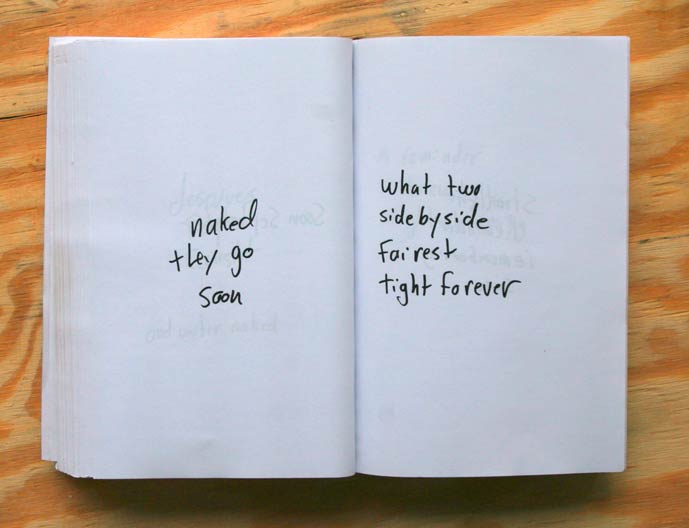 naked
they go
soon
what two
side by side
fairest
tight forever